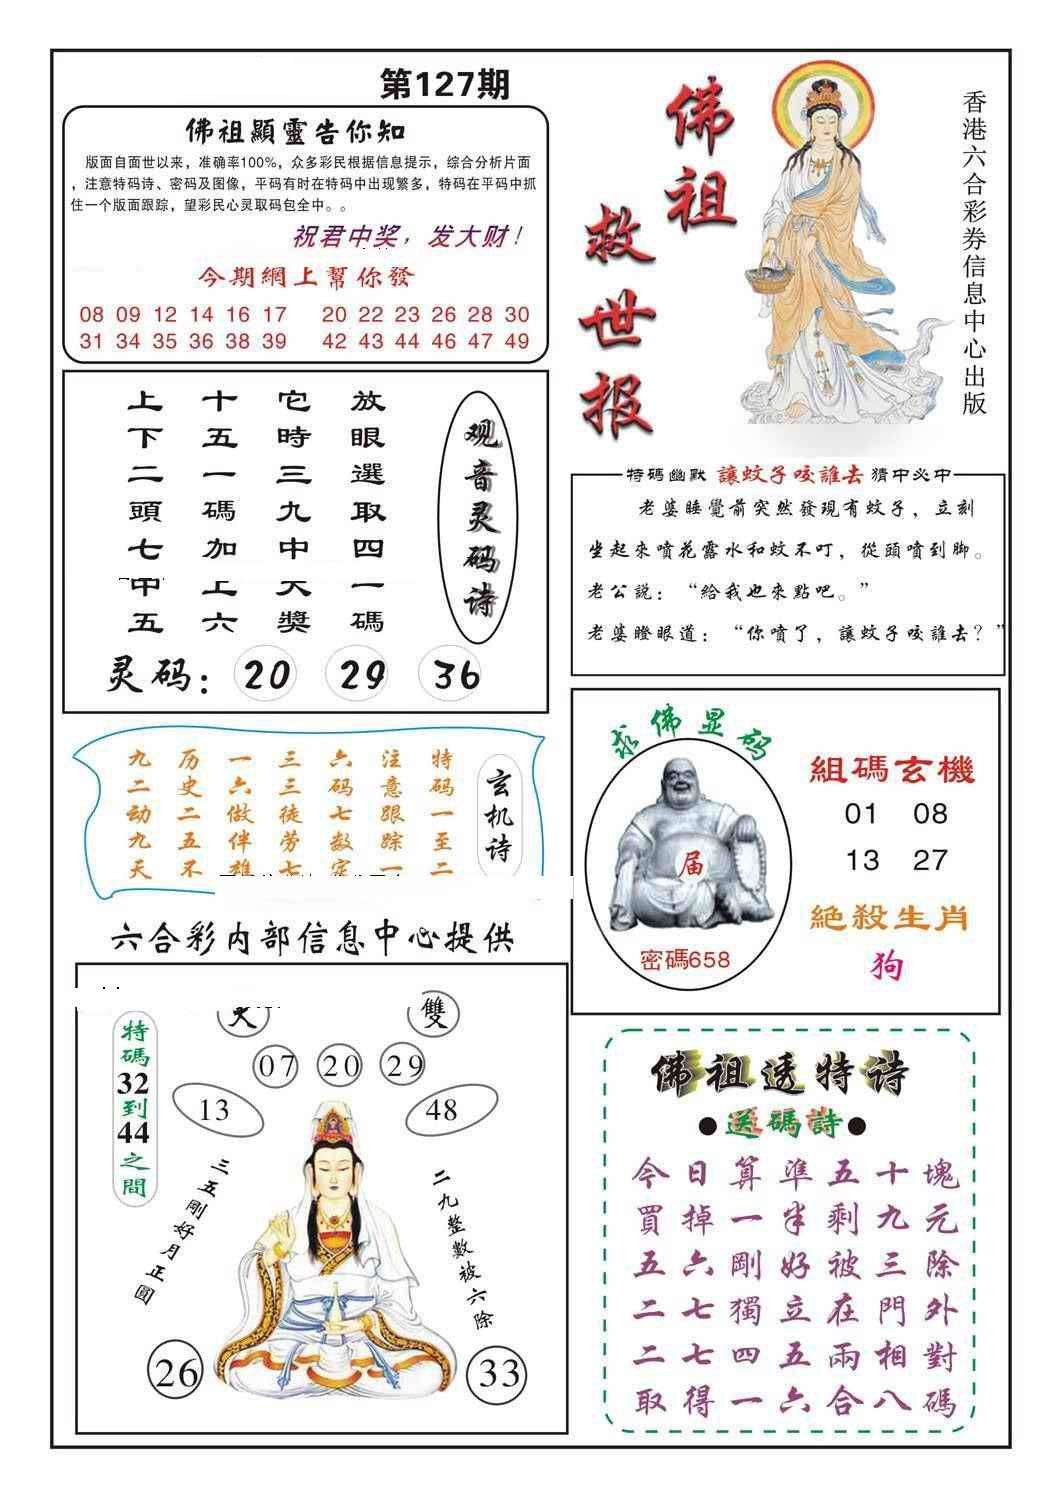 第127期
佛祖顯靈告你知
版面自面世以来，准确率100%，众多彩民根据信息提示，综合分析片面
，注意特码诗、密码及图像，平码有时在特码中出现繁多，特码在平码中抓
住一个版面跟踪，望彩民心灵取码包全中。。
祝君中奖，发大财！
今期網上幫你發
08 09 12 14 16 17 20 22 23 26 28 30
31 34 35 36 38 39 42 43 44 46 47 49
佛祖
救世报
香港六合彩券信息中心出版
观音灵码诗
放眼選取四一碼
它時三九中大獎
十五一碼加上六
上下二頭七中五
灵码：20 29 36
特碼幽默 讓蚊子咬誰去 猜中必中
老婆睡覺前突然發現有蚊子，立刻
坐起來噴花露水和蚊不叮，從頭噴到脚。
老公説：“給我也來點吧。”
老婆瞪眼道：“你噴了，讓蚊子咬誰去？”
玄机诗
特码一至二
注意跟踪一
六码七数定
三三徒劳七
一六做伴雄
历史二五不
九二动九天
求佛显码
届
密碼658
組碼玄機
01 08
13 27
絕殺生肖
狗
六合彩内部信息中心提供
雙
特碼32到44之間
07 20 29
13 48
三五剛好月正圓
二九整數被六除
26 33
佛祖透特诗
●送碼詩●
今日算準五十塊
買掉一半剩九元
五六剛好被三除
二七獨立在門外
二七四五兩相對
取得一六合八碼